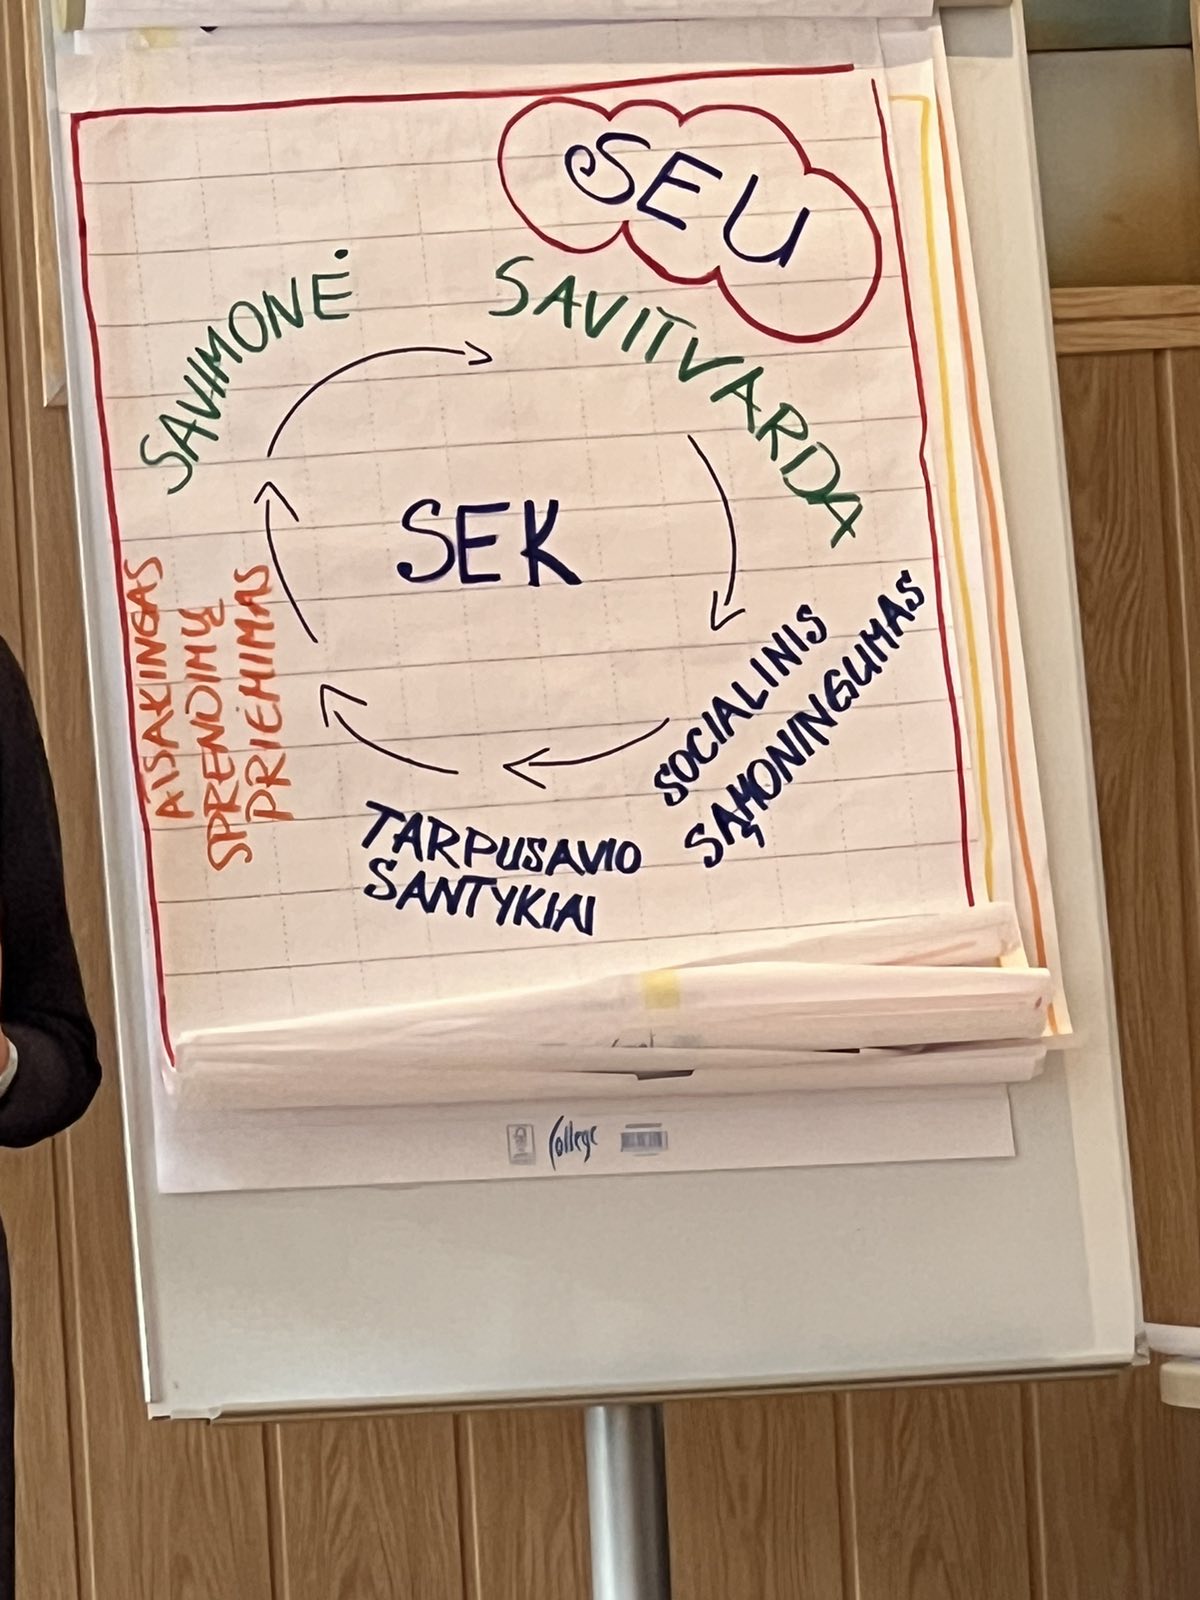 SEU
SAVIMONĖ
SAVITVARDA
SEK
SOCIALINIS
SĄMONINGUMAS
TARPUSAVIO
SANTYKIAI
ATSAKINGAS
SPRENDIMŲ
PRIĖMIMAS
College